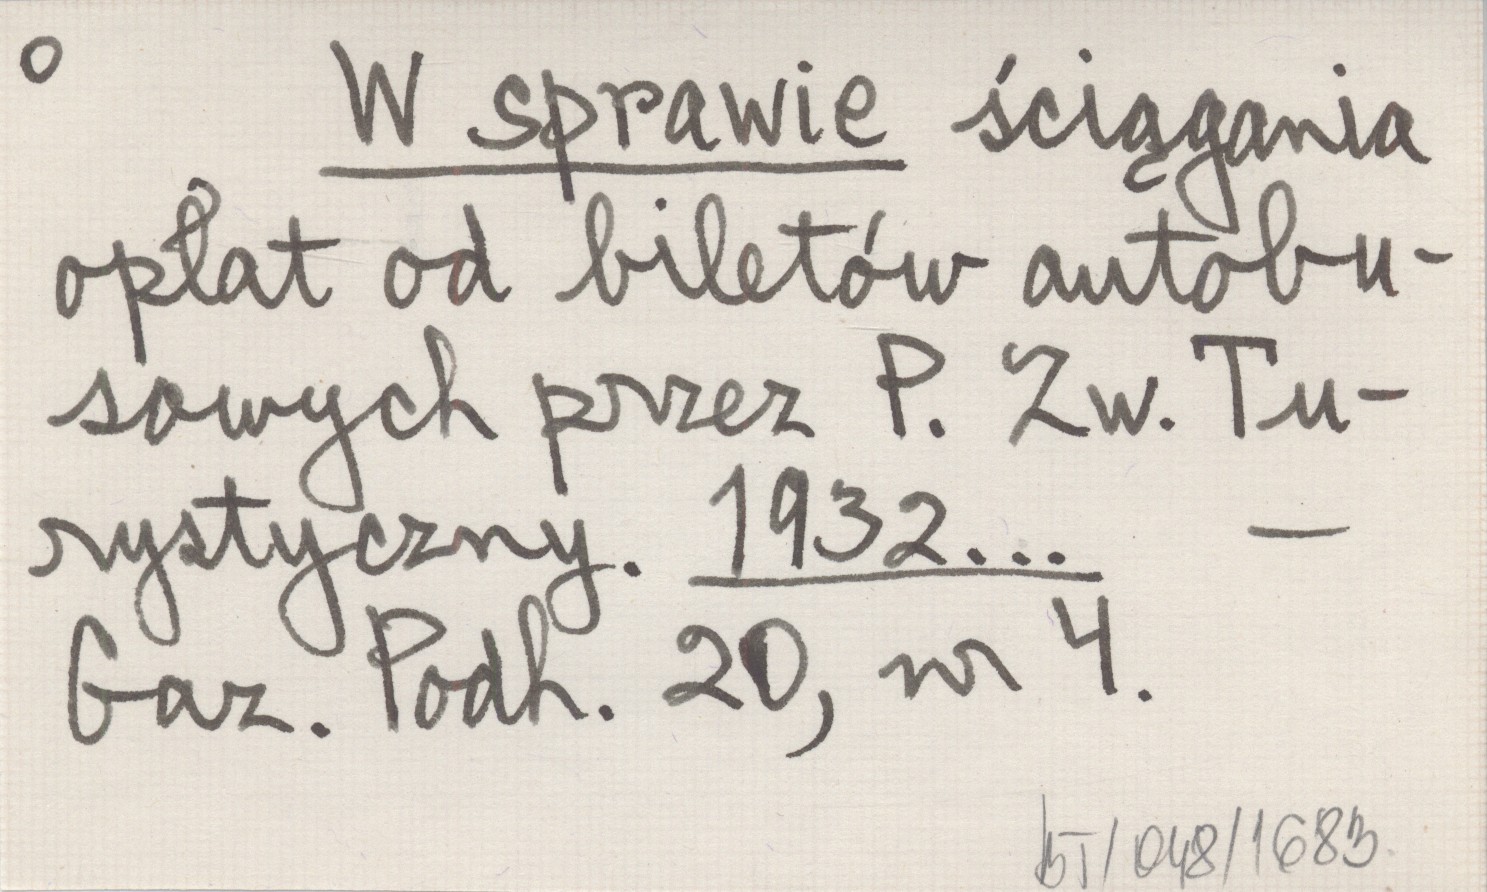 o W sprawie ściągania
opłat od biletów autobu-
sowych przez P. Zw. Tu-
rystyczny. 1932... —
Gaz. Podh. 20, nr 4.
/048/1683